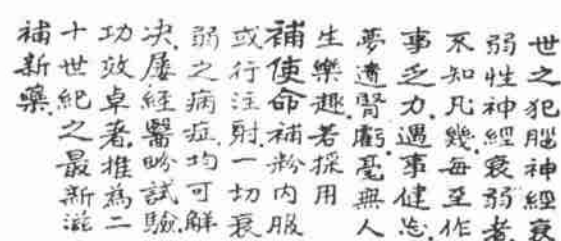 世之犯腦神經衰
弱性神經衰弱者
不知凡幾每至作
事乏力.遇事健忘.
夢遺腎虧.毫無人
生樂趣.若採用
補使命補粉內服
或行注射.一切衰
弱之病症.均可解
決.屢経醫師試驗.
功效卓著.推為二
十世紀之最新滋
補新藥.